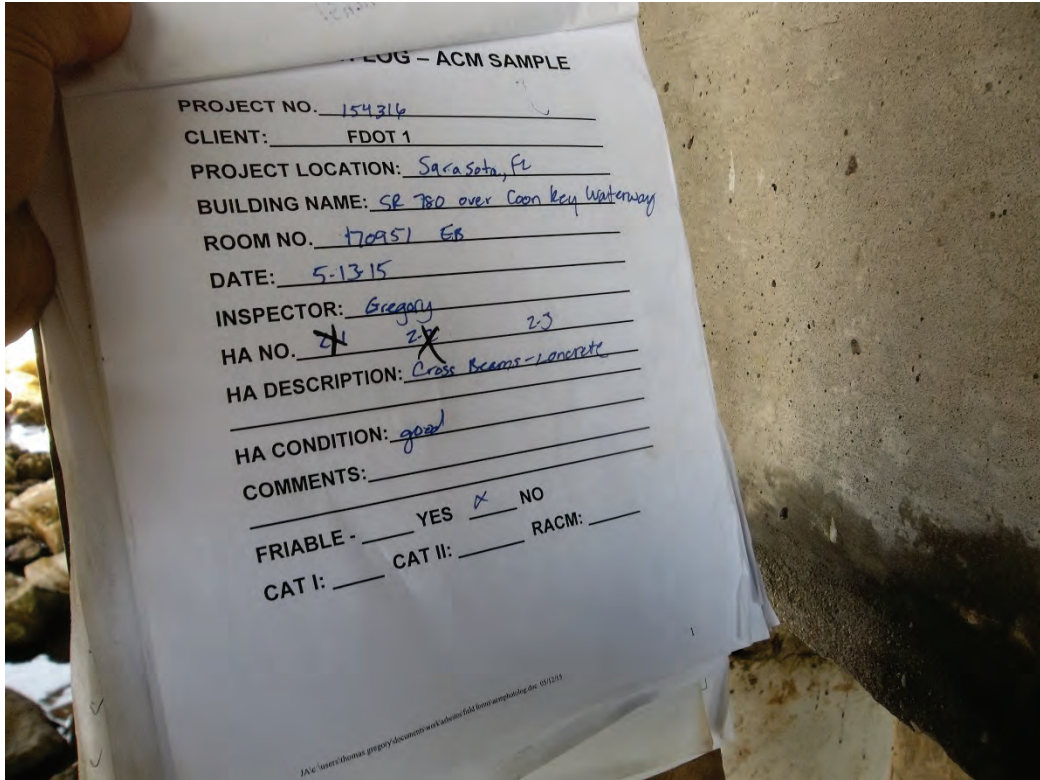 LOG – ACM SAMPLE
PROJECT NO. 154316
CLIENT: FDOT 1
PROJECT LOCATION: Sarasota, FL
BUILDING NAME: SR 780 over Coon Key Waterway
ROOM NO. 170951 EB
DATE: 5-13-15
INSPECTOR: Gregory
HA NO. 2-1 2-2 2-3
HA DESCRIPTION: Cross Beams - Concrete
HA CONDITION: good
COMMENTS:
FRIABLE - ____ YES x NO
CAT I: ____ CAT II: ____ RACM: ____
1
JA\c:\users\thomas gregory\documents\work\asbestos\field forms\acmphotolog.doc 03/12/15